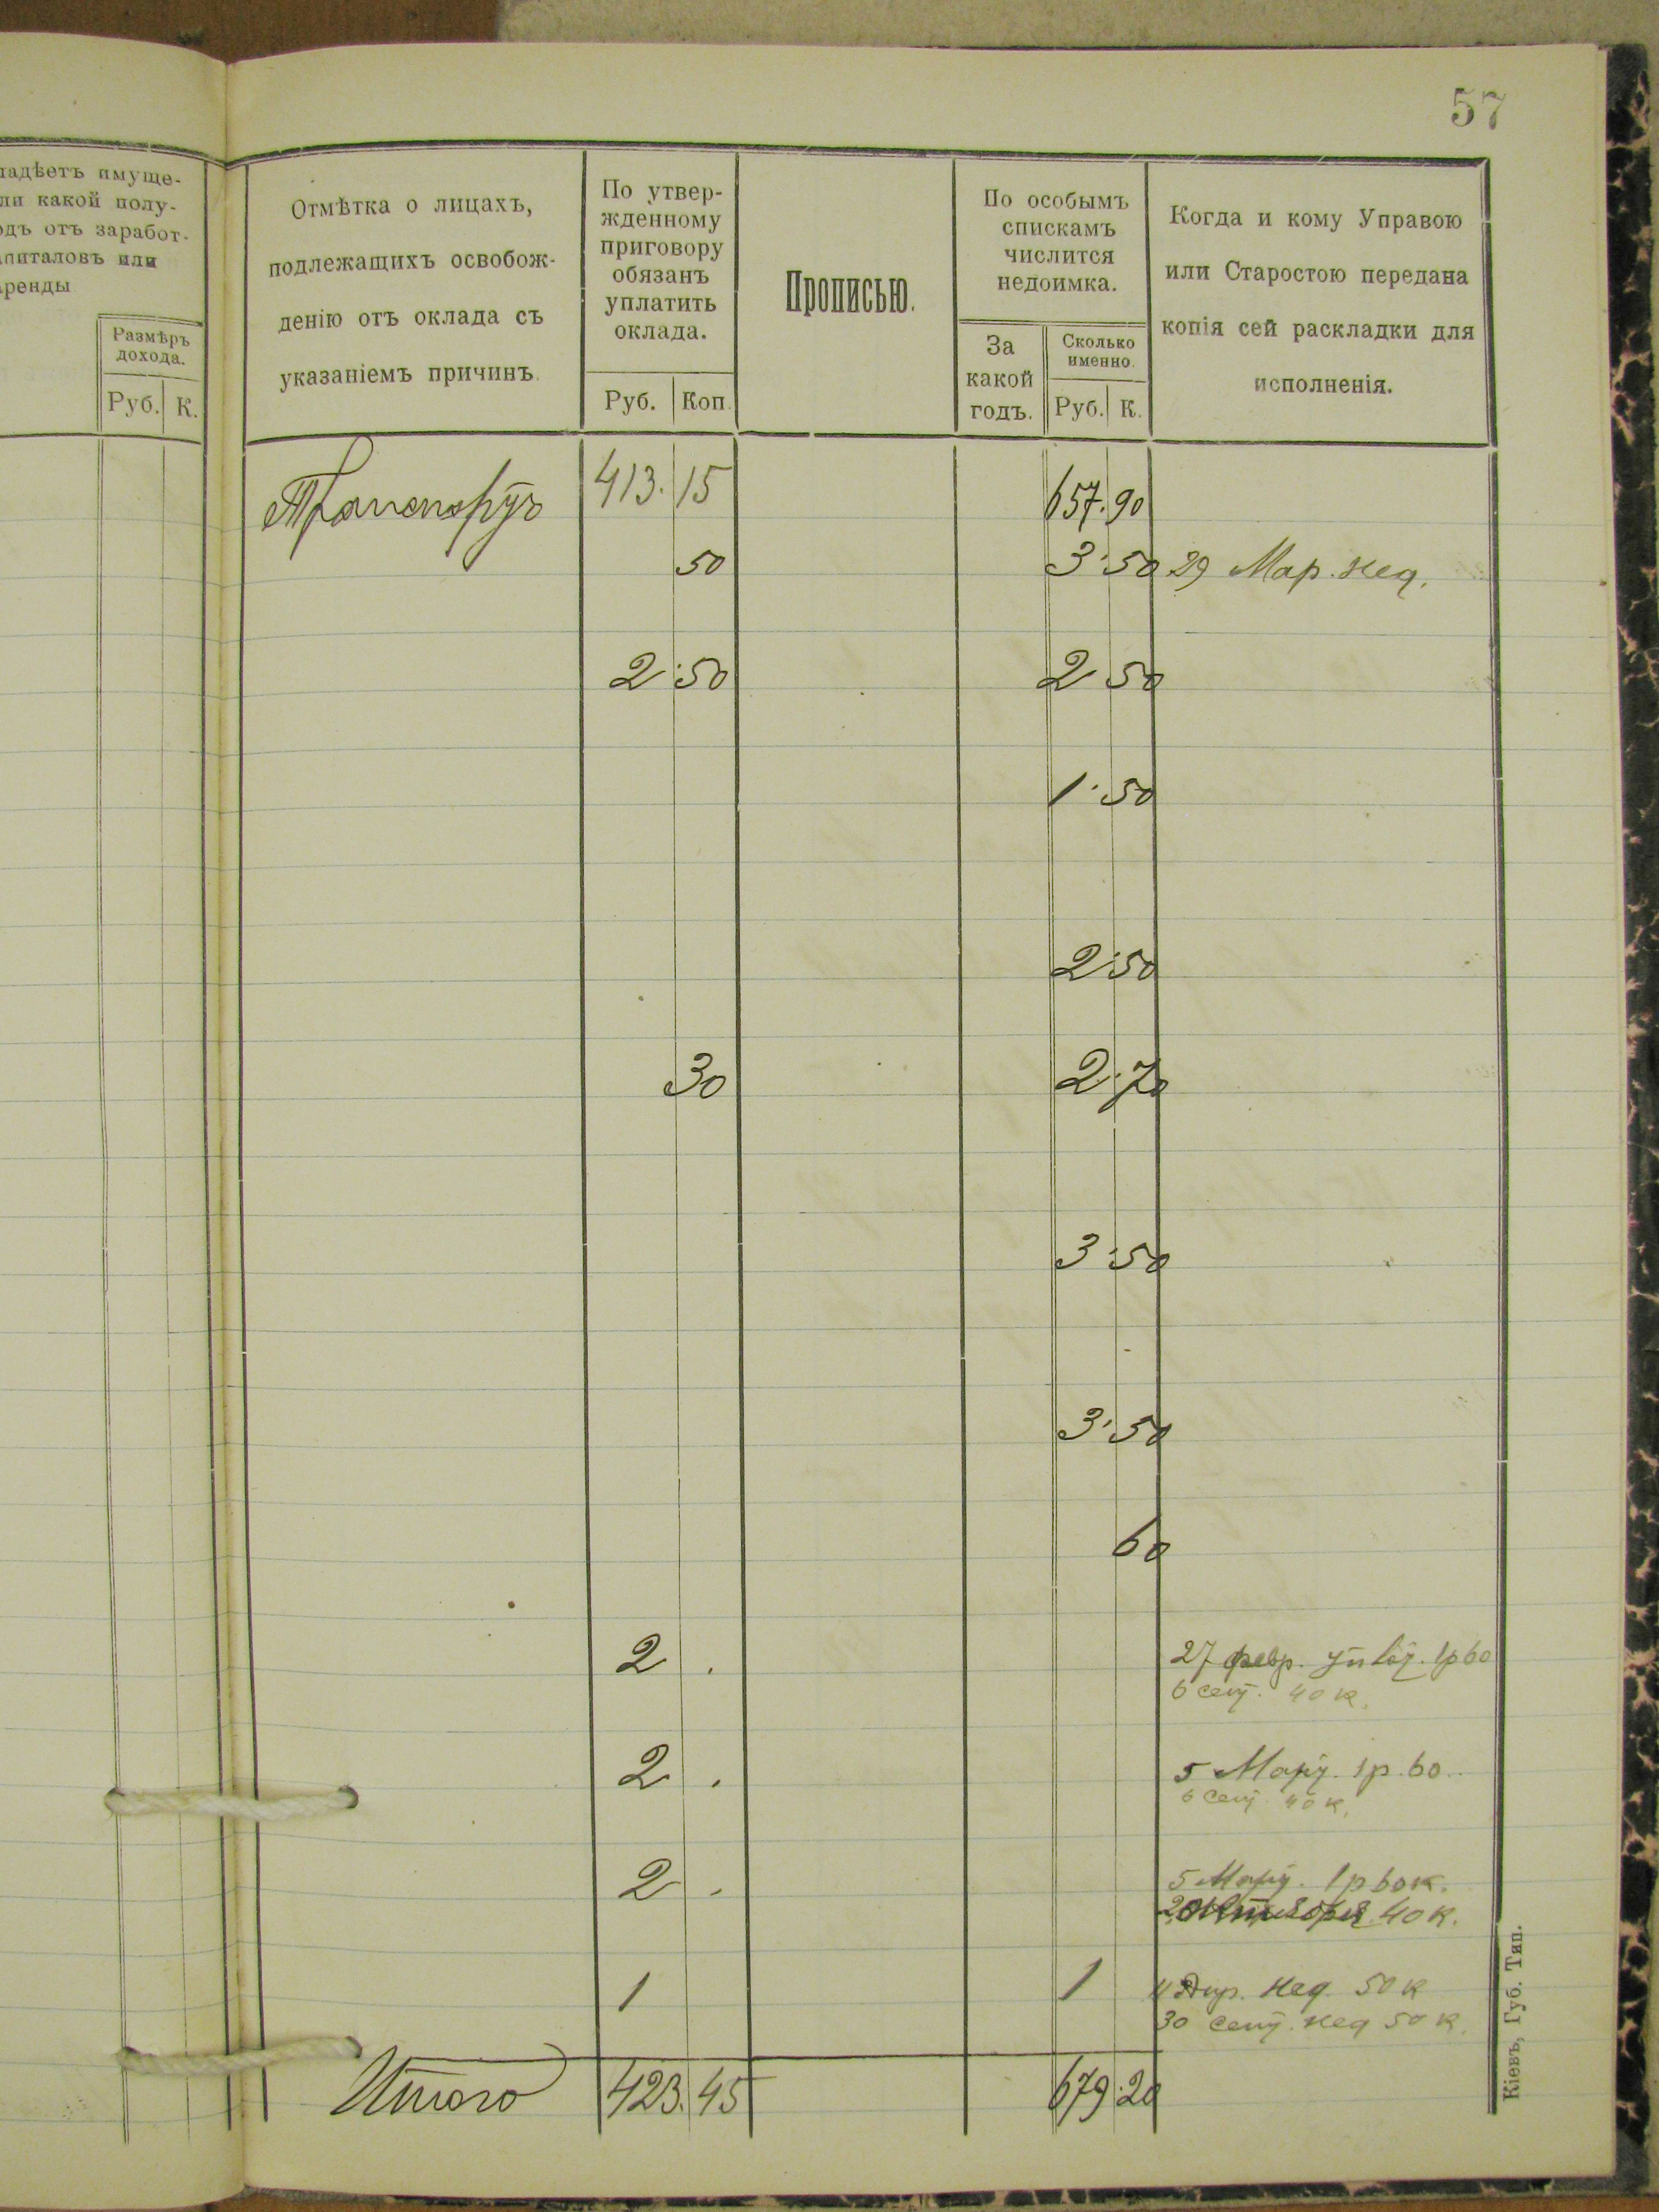 57
ладѣетъ имуще-
ли какой полу-
одъ отъ заработ-
апиталовъ или
аренды
Размѣръ
дохода.
Руб. К.
Отмѣтка о лицахъ,
подлежащихъ освобож-
денію отъ оклада съ
указаніемъ причинъ.
По утвер-
жденному
приговору
обязанъ
уплатить
оклада.
Руб. Коп.
Прописью.
По особымъ
спискамъ
числится
недоимка.
За
какой
годъ.
Сколько
именно.
Руб. К.
Когда и кому Управою
или Старостою передана
копія сей раскладки для
исполненія.
Транспортъ 413. 15 657. 90
50 3.50 29 Мар. нед.
2.50 2 50
1.50
2.50
30 2.70
3.50
3.50
60
2 . 27 февр. 1р 60
6 сент. 40 к.
2 . 5 Март. 1р. 60
6 сент. 40 к.
2 . 5 Март. 1р 60 к.
2 Октября 40 к.
1 1 Апр. нед. 50 к
30 сент. нед 50 к.
Итого 423. 45 679.20
Кіевъ, Губ. Тип.